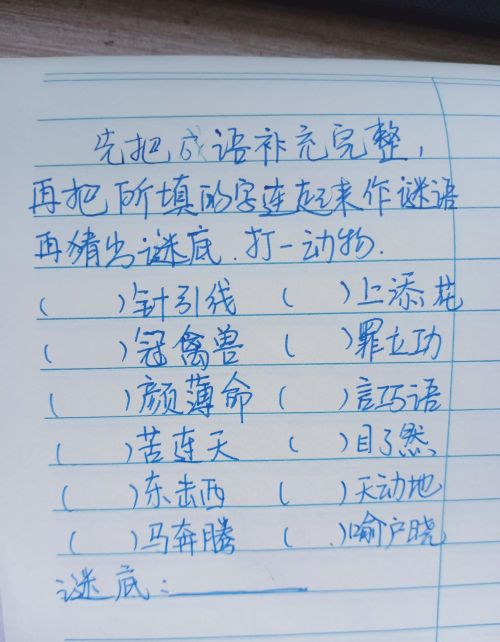 先把成语补充完整,
再把所填的字连起来作谜语
再猜出谜底.打一动物.
( )针引线 ( )上添花
( )冠禽兽 ( )罪立功
( )颜薄命 ( )言巧语
( )苦连天 ( )目了然
( )东击西 ( )天动地
( )马奔腾 ( )喻户晓
谜底: